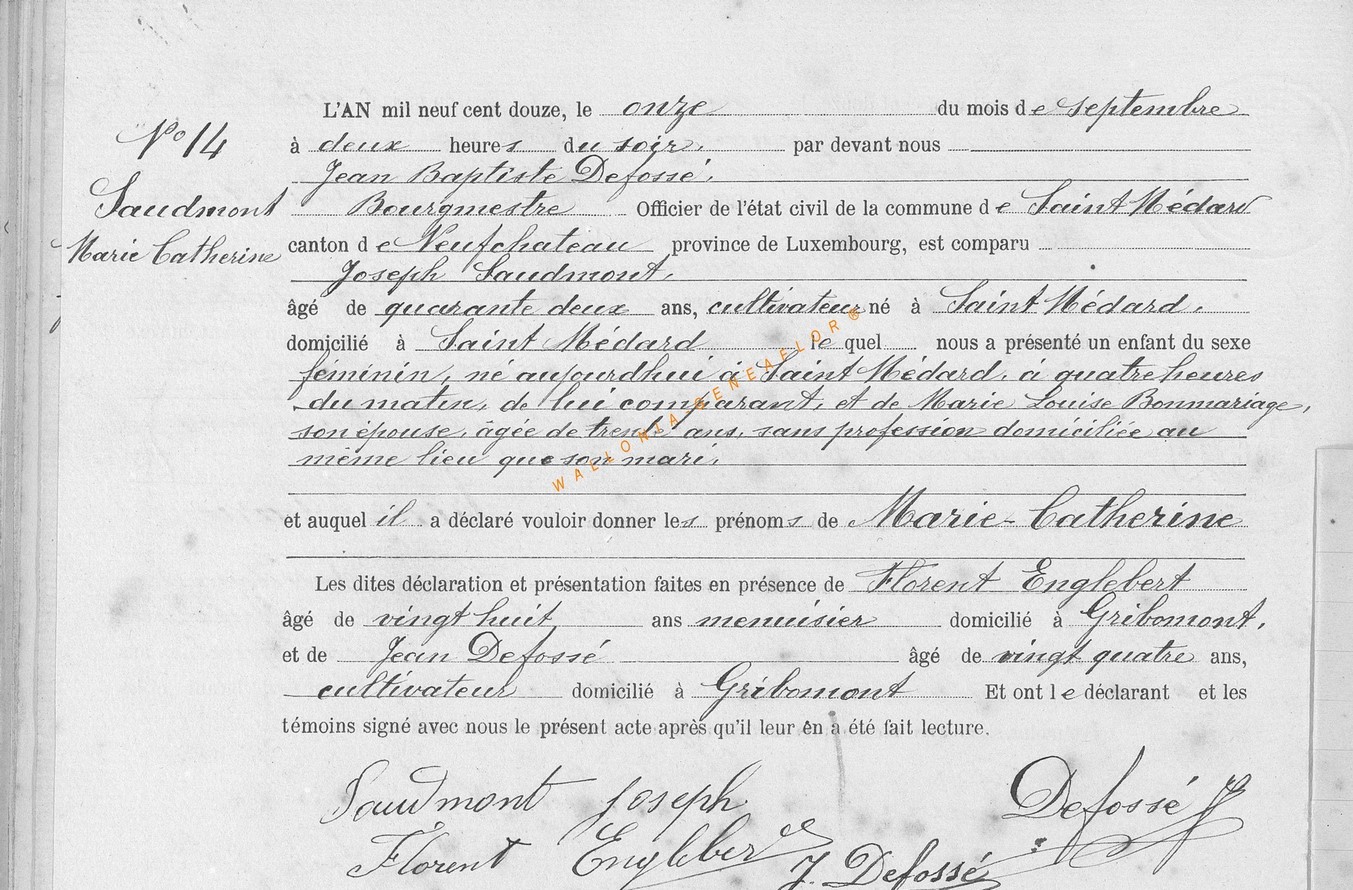 L'AN mil neuf cent douze, le onze du mois de Septembre
N° 14
à deux heures du soir, par devant nous
Jean Baptiste Defossé,
Saudmont
Bourgmestre Officier de l'état civil de la commune de Saint Médard
Marie Catherine
canton de Neufchateau province de Luxembourg, est comparu
Joseph Saudmont,
âgé de quarante deux ans, cultivateur né à Saint Médard,
domicilié à Saint Médard lequel nous a présenté un enfant du sexe
féminin, né aujourdhui à Saint Médard, à quatre heures
du matin, de lui comparant, et de Marie Louise Bonmariage,
son épouse, âgée de trente ans, sans profession domiciliée au
même lieu que son mari,
WALLONIA GENEAELOR ®
et auquel il a déclaré vouloir donner les prénoms de Marie-Catherine
Les dites déclaration et présentation faites en présence de Florent Englebert
âgé de vingt huit ans menuisier domicilié à Gribomont,
et de Jean Defossé âgé de vingt quatre ans,
cultivateur domicilié à Gribomont Et ont le déclarant et les
témoins signé avec nous le présent acte après qu'il leur en a été fait lecture.
Saudmont Joseph
Defossé J
Florent Englebert
J. Defossé